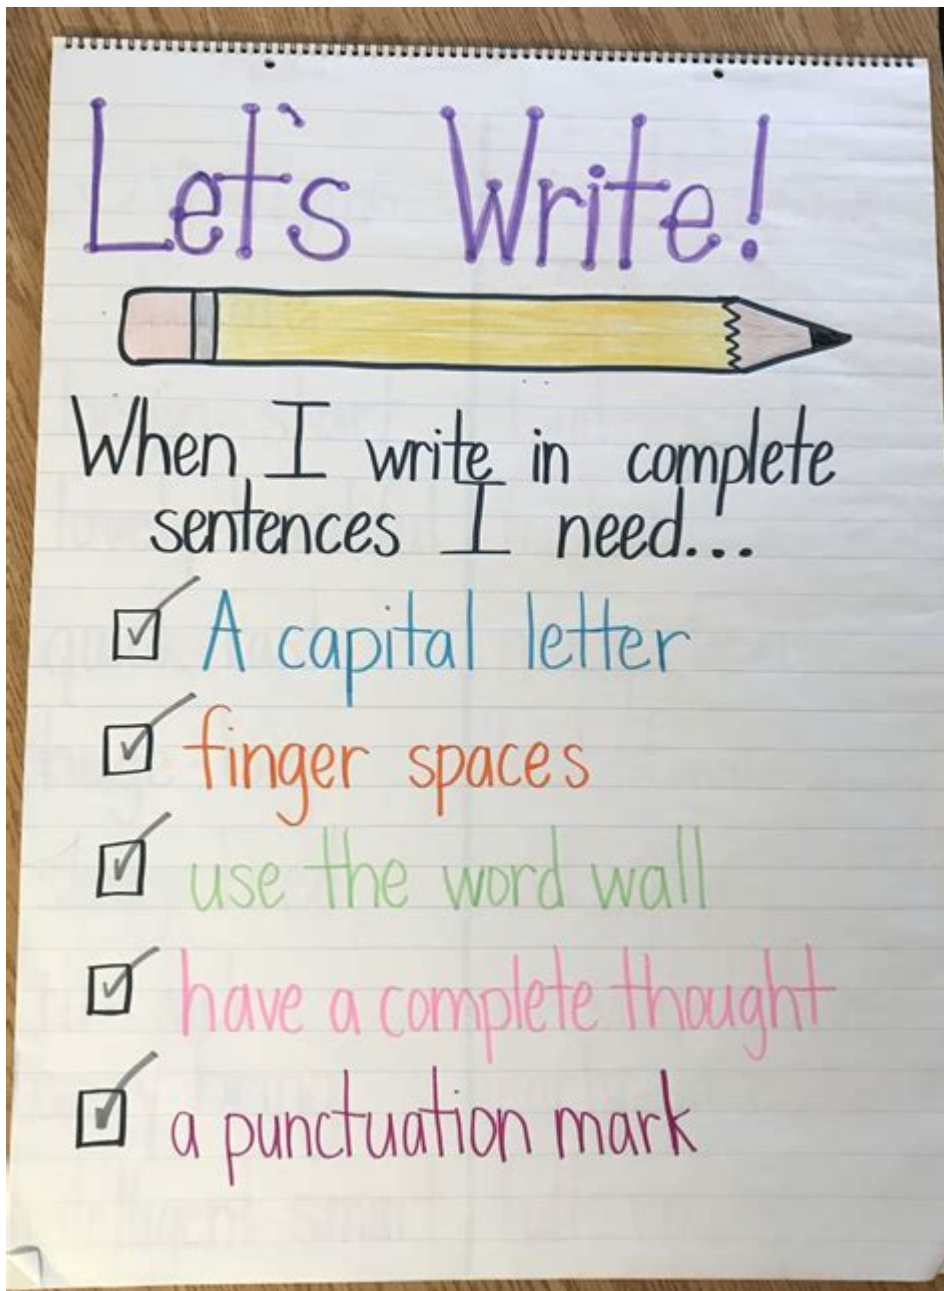 Let's Write!
When I write in complete
sentences I need...
A capital letter
finger spaces
use the word wall
have a complete thought
a punctuation mark